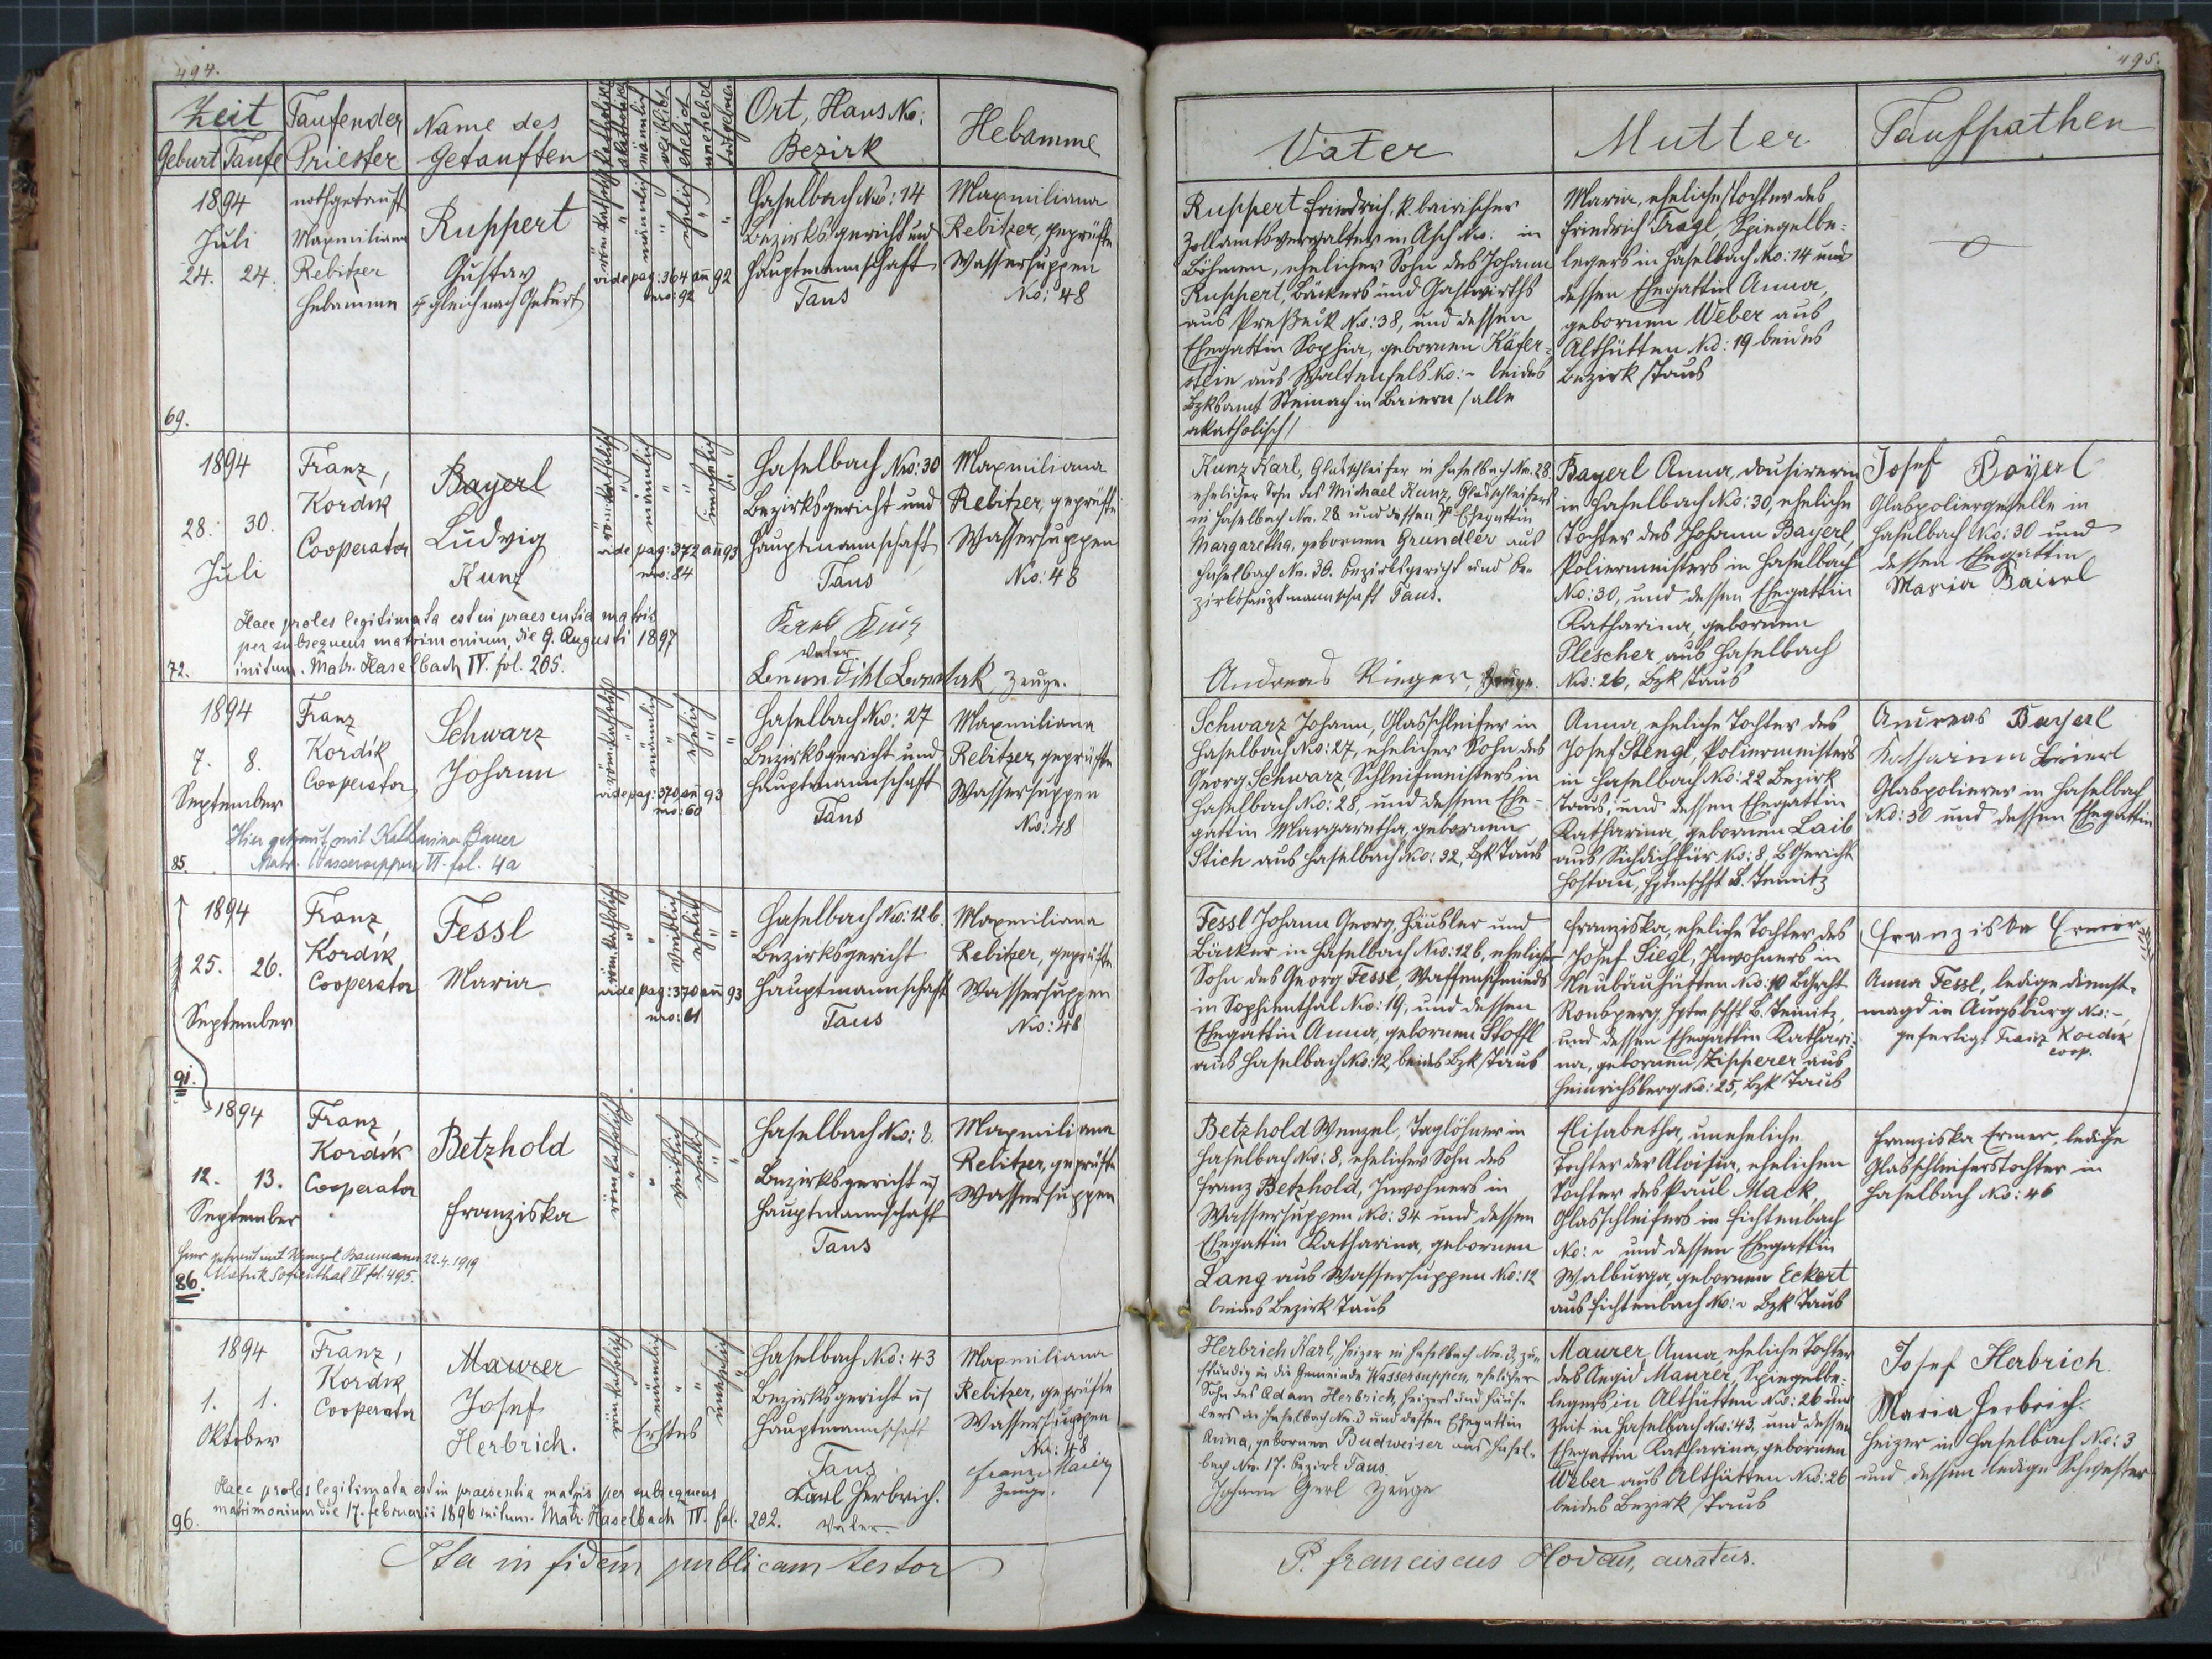 494.
Zeit
Geburt Taufe
Taufender
Priester
Name des
Getauften
katholisch
akatholisch
männlich
weiblich
ehelich
unehelich
todtgeboren
Ort, Haus No:
Bezirk
Hebamme
1894
Juli
24. 24.
69.
nothgetauft
Maxmiliana
Rebitzer
Hebamme
Ruppert
Gustav
† gleich nach Geburt
röm. katholisch
männlich
ehelich
vide pag: 364 an 92
nro: 92
Haselbach No: 14
Bezirksgericht und
Hauptmannschaft
Taus
Maxmiliana
Rebitzer, geprüfte
Wassersuppen
No: 48
1894
28. 30.
Juli
72.
Franz
Kordik
Cooperator
Bayerl
Ludwig
Kunz
röm. katholisch
männlich
unehelich
vide pag: 372 an 93
nro: 84
Haselbach No: 30
Bezirksgericht und
Hauptmannschaft
Taus
Maxmiliana
Rebitzer, geprüfte
Wassersuppen
No: 48
Haec proles legitimata est in praesentia matris
per subsequens matrimonium, die 9. Augusti 1897
initum. Matr. Haselbach IV. fol. 205.
Karl Kunz
Vater
Zeuge.
1894
7. 8.
September
85.
Franz
Kordik
Cooperator
Schwarz
Johann
röm. katholisch
männlich
ehelich
vide pag: 370 an 93
nro: 60
Haselbach No: 27
Bezirksgericht und
Hauptmannschaft
Taus
Maxmiliana
Rebitzer, geprüfte
Wassersuppen
No: 48
Hier getraut mit Katharina Bauer
Matr. Wassersuppen VI. fol. 4a
1894
25. 26.
September
91.
Franz
Kordik
Cooperator
Fessl
Maria
röm. katholisch
weiblich
ehelich
vide pag: 370 an 93
nro: 61
Haselbach No: 126.
Bezirksgericht
Hauptmannschaft
Taus
Maxmiliana
Rebitzer, geprüfte
Wassersuppen
No: 48
1894
12. 13.
September
86.
Franz
Kordik
Cooperator
Betzhold
Franziska
röm. katholisch
weiblich
ehelich
Haselbach No: 8.
Bezirksgericht u
Hauptmannschaft
Taus
Maxmiliana
Rebitzer, geprüfte
Wassersuppen
getraut mit Wenzel Baumann 22.4.1919
Matrik Sofienthal IV fol. 495.
1894
1. 1.
Oktober
96.
Franz,
Kordik
Cooperator
Maurer
Josef
Herbrich.
röm. katholisch
männlich
unehelich
Erstes
Haselbach No: 43
Bezirksgericht u
Hauptmannschaft
Taus
Maxmiliana
Rebitzer, geprüfte
Wassersuppen
No: 48
Franz Maier
Zeuge.
Karl Herbrich.
Vater.
Haec proles legitimata est in praesentia matris per subsequens
matrimonium die 17. februarii 1896 initum. Matr. Haselbach IV. fol. 202.
Ita in fidem publicam testor
495.
Vater
Mutter
Taufpathen
Ruppert Friedrich, k. bairischer
Zollamtsverwalter in Asch No: in
Böhmen, ehelicher Sohn des Johann
Ruppert, Bäckers und Gastwirths
aus Preßeck No: 38, und dessen
Ehegattin Sophia, gebornen Käfer-
stein aus Wallenfels No: - beides
Bzksamt Steinach in Baiern /alle
akatholisch/
Maria, eheliche Tochter des
Friedrich Tragl, Spiegelbe-
legers in Haselbach No: 14 und
dessen Ehegattin Anna,
gebornen Weber aus
Althütten No: 19 beides
Bezirk Taus
Kunz Karl, Glasschleifer in Haselbach No. 28
ehelicher Sohn des Michael Kunz, Glasschleifers
in Haselbach No. 28 und dessen Ehegattin
Margaretha, gebornen Grundler aus
Haselbach No. 30. Bezirksgericht und Be-
zirkshauptmannschaft Taus.
Andreas Rieger, Zeuge.
Bayerl Anna, Dousirerin
in Haselbach No: 30, eheliche
Tochter des Johann Bayerl,
Poliermeisters in Haselbach
No: 30, und dessen Ehegattin
Katharina, gebornen
Plescher aus Haselbach
No: 26, Bzk Taus
Josef Bayerl
Glaspoliergeselle in
Haselbach No: 30 und
dessen Ehegattin
Maria Baierl
Schwarz Johann, Glasschleifer in
Haselbach No: 27, ehelicher Sohn des
Georg Schwarz Schleifmeisters in
Haselbach No: 28, und dessen Ehe-
gattin Margaretha, gebornen
Stich aus Haselbach No: 32, Bzk Taus
Anna, eheliche Tochter des
Josef Stengl, Poliermeisters
in Haselbach No: 22 Bezirk
Taus, und dessen Ehegattin
Katharina, gebornen Laib
aus Sichdichfür No: 8, BGericht
Hostau, Hptmschft B. Teinitz
Andreas Bayerl
Katharina Beierl
Glaspolierer in Haselbach
No: 30 und dessen Ehegattin
Fessl Johann Georg, Häusler und
Bäcker in Haselbach No: 126, ehelicher
Sohn des Georg Fessl, Waffenschmieds
in Sophienthal No: 19, und dessen
Ehegattin Anna, gebornen Stoffl
aus Haselbach No: 12, beides Bzk Taus
Franziska, eheliche Tochter des
Josef Siegl, Inwohners in
Neubäuhütten No: 10 BGrcht
Ronsperg Hptmschft B. Teinitz,
und dessen Ehegattin Kathari-
na, gebornen Zipperer aus
Heinrichsberg No: 25, Bzk Taus
Franziska Ermer
Anna Fessl, ledige Dienst-
magd in Augsburg No: -,
gefertigt Franz Kordik
coop.
Betzhold Wenzel, Taglöhner in
Haselbach No: 8, ehelicher Sohn des
Franz Betzhold, Inwohners in
Wassersuppen No: 34 und dessen
Ehegattin Katharina, gebornen
Lang aus Wassersuppen No: 12
beides Bezirk Taus
Elisabetha, uneheliche
Tochter der Aloisia, ehelichen
Tochter des Paul Mack,
Glasschleifers in Fichtenbach
No: - und dessen Ehegattin
Walburga, gebornen Eckert
aus Fichtenbach No: - Bzk Taus
Franziska Ermer, ledige
Glasschleiferstochter in
Haselbach No: 46
Herbrich Karl, Heizer in Haselbach No. 3, zu-
ständig in die Gemeinde Wassersuppen, ehelicher
Sohn des Adam Herbrich, Heizers und Häus-
lers in Haselbach No. 3 und dessen Ehegattin
Anna, gebornen Budweiser aus Hasel-
bach No. 17. Bezirk Taus.
Johann Gerl Zeuge
Maurer Anna, eheliche Tochter
des Aegid Maurer, Spiegelbe-
legers in Althütten No: 26 und
Zeit in Haselbach No: 43, und dessen
Ehegattin Katharina, gebornen
Weber aus Althütten No: 26
beides Bezirk Taus
Josef Herbrich.
Maria Herbrich.
Heizer in Haselbach No: 3
und dessen ledige Schwester
P. Franciscus Hodau, curatus.